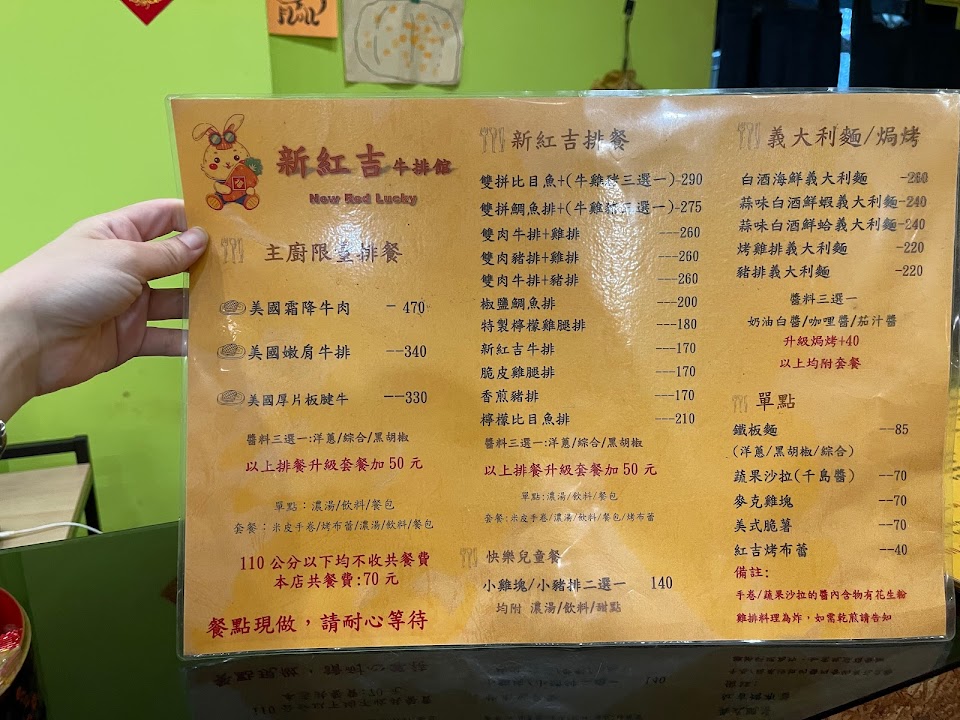 新紅吉牛排館
New Red Lucky
主廚限量排餐
美國霜降牛肉 - 470
美國嫩肩牛排 --340
美國厚片板腱牛 --330
醬料三選一:洋蔥/綜合/黑胡椒
以上排餐升級套餐加 50 元
單點:濃湯/飲料/餐包
套餐:米皮手卷/烤布蕾/濃湯/飲料/餐包
110 公分以下均不收共餐費
本店共餐費:70 元
餐點現做,請耐心等待
新紅吉排餐
雙拼比目魚+(牛雞豬三選一)-290
雙拼鯛魚排+(牛雞豬三選一)-275
雙肉牛排+雞排 ---260
雙肉豬排+雞排 ---260
雙肉牛排+豬排 ---260
椒鹽鯛魚排 ---200
特製檸檬雞腿排 ---180
新紅吉牛排 ---170
脆皮雞腿排 ---170
香煎豬排 ---170
檸檬比目魚排 ---210
醬料三選一:洋蔥/綜合/黑胡椒
以上排餐升級套餐加 50 元
單點:濃湯/飲料/餐包
套餐:米皮手卷/濃湯/飲料/餐包/烤布蕾
快樂兒童餐
小雞塊/小豬排二選一 140
均附 濃湯/飲料/甜點
義大利麵/焗烤
白酒海鮮義大利麵 -260
蒜味白酒鮮蝦義大利麵-240
蒜味白酒鮮蛤義大利麵-240
烤雞排義大利麵 -220
豬排義大利麵 -220
醬料三選一
奶油白醬/咖哩醬/茄汁醬
升級焗烤+40
以上均附套餐
單點
鐵板麵 --85
(洋蔥/黑胡椒/綜合)
蔬果沙拉(千島醬) --70
麥克雞塊 --70
美式脆薯 --70
紅吉烤布蕾 --40
備註:
手卷/蔬果沙拉的醬內含物有花生粉
雞排料理為炸,如需乾煎請告知